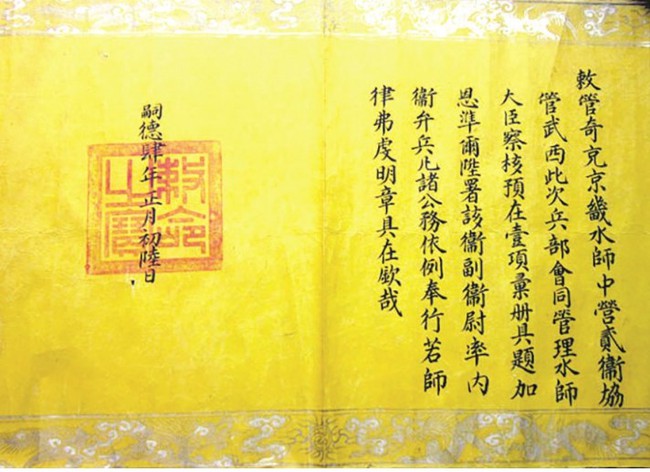 敕管奇充京畿水師中營貳衞協
管武西此次兵部會同管理水師
大臣察核預在壹項彙册具題加
恩準爾陞署該衞副衞尉率內
衞弁兵凡諸公務依例奉行若師
律弗虔明章具在歟哉
嗣德肆年正月初陸日
敕命之寶